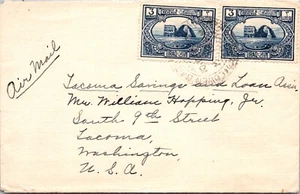 3 3
Air Mail
Tacoma Savings and Loan Assn.
Mr. William Hopping, Jr.
South 9th Street
Tacoma,
Washington,
U. S. A.